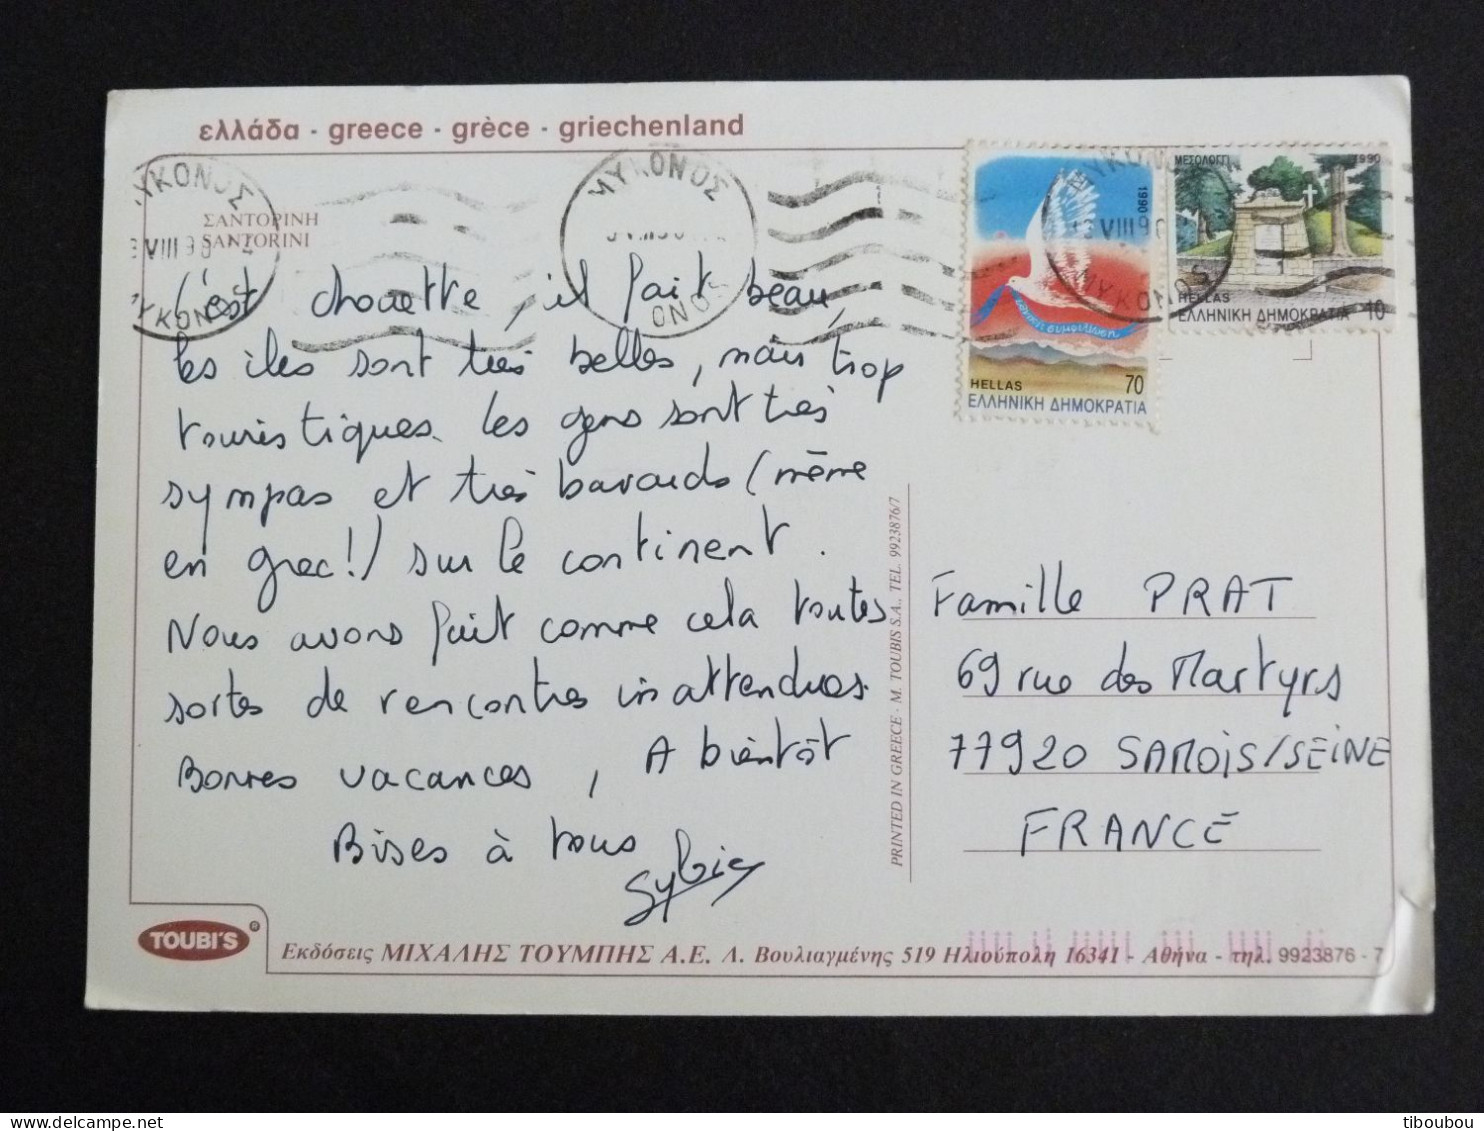 ελλάδα - greece - grèce - griechenland
ΣΑΝΤΟΡΙΝΗ
SANTORINI
ΜΥΚΟΝΟΣ
VIII 90
ΜΥΚΟΝΟΣ
ΜΥΚΟΝΟΣ
ΜΥΚΟΝΟΣ
VIII 90
ΜΥΚΟΝΟΣ
1990
HELLAS 70
ΕΛΛΗΝΙΚΗ ΔΗΜΟΚΡΑΤΙΑ
ΜΕΣΟΛΟΓΓΙ 1990
HELLAS
ΕΛΛΗΝΙΚΗ ΔΗΜΟΚΡΑΤΙΑ 10
C'est chouette, il fait beau,
les îles sont très belles, mais trop
touristiques. Les gens sont très
sympas et très bavards (même
en grec!) sur le continent.
Nous avons fait comme cela toutes
sortes de rencontres inattendues.
Bonnes vacances, A bientôt
Bises à tous
Sylvie
PRINTED IN GREECE - M. TOUBIS S.A., TEL. 9923876/7
Famille PRAT
69 rue des Martyrs
77920 SAMOIS/SEINE
FRANCE
TOUBI'S ®
Εκδόσεις ΜΙΧΑΛΗΣ ΤΟΥΜΠΗΣ Α.Ε. Λ. Βουλιαγμένης 519 Ηλιούπολη 16341 - Αθήνα - τηλ. 9923876 - 7
tiboubou